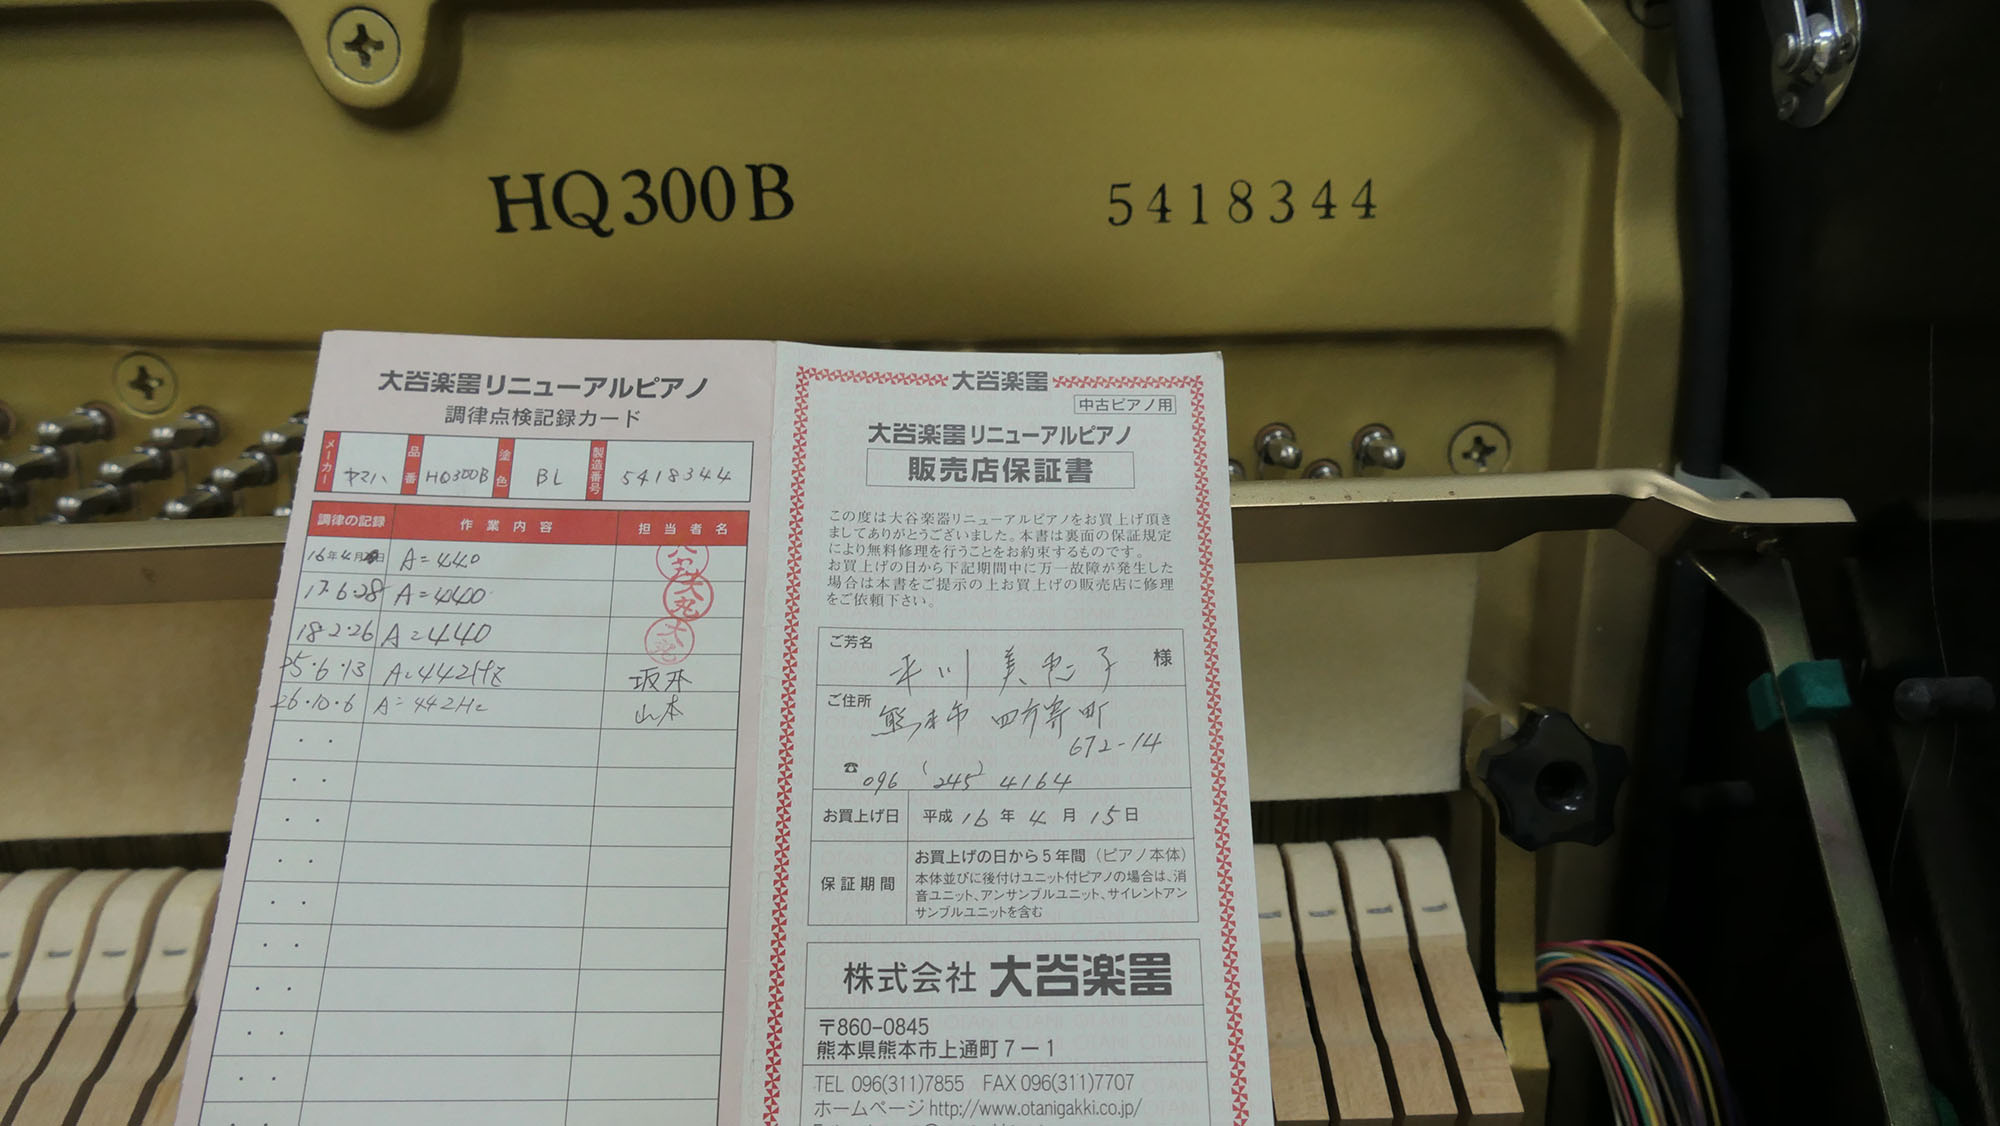 HQ300B
5418344
大谷楽器リニューアルピアノ
調律点検記録カード
メーカー ヤマハ 品番 HQ300B 塗色 BL 製造番号 5418344
調律の記録 作業内容 担当者名
16年4月 日 A=440
17・6・28 A=440 大丸
18・2・26 A=440 大丸
25・6・13 A=442Hz 坂本
26・10・6 A=442Hz 山本
大谷楽器
中古ピアノ用
大谷楽器リニューアルピアノ
販売店保証書
この度は大谷楽器リニューアルピアノをお買上げ頂き
ましてありがとうございました。本書は裏面の保証規定
により無料修理を行うことをお約束するものです。
お買上げの日から下記期間中に万一故障が発生した
場合は本書をご提示の上お買上げの販売店に修理
をご依頼下さい。
ご芳名 平川 美恵子 様
ご住所 熊本市 四方寄町
672-14
☎ 096 (245) 4164
お買上げ日 平成16年4月15日
保証期間
お買上げの日から5年間(ピアノ本体)
本体並びに後付けユニット付ピアノの場合は、消
音ユニット、アンサンブルユニット、サイレントアン
サンブルユニットを含む
株式会社 大谷楽器
〒860-0845
熊本県熊本市上通町7-1
TEL 096(311)7855 FAX 096(311)7707
ホームページ http://www.otanigakki.co.jp/